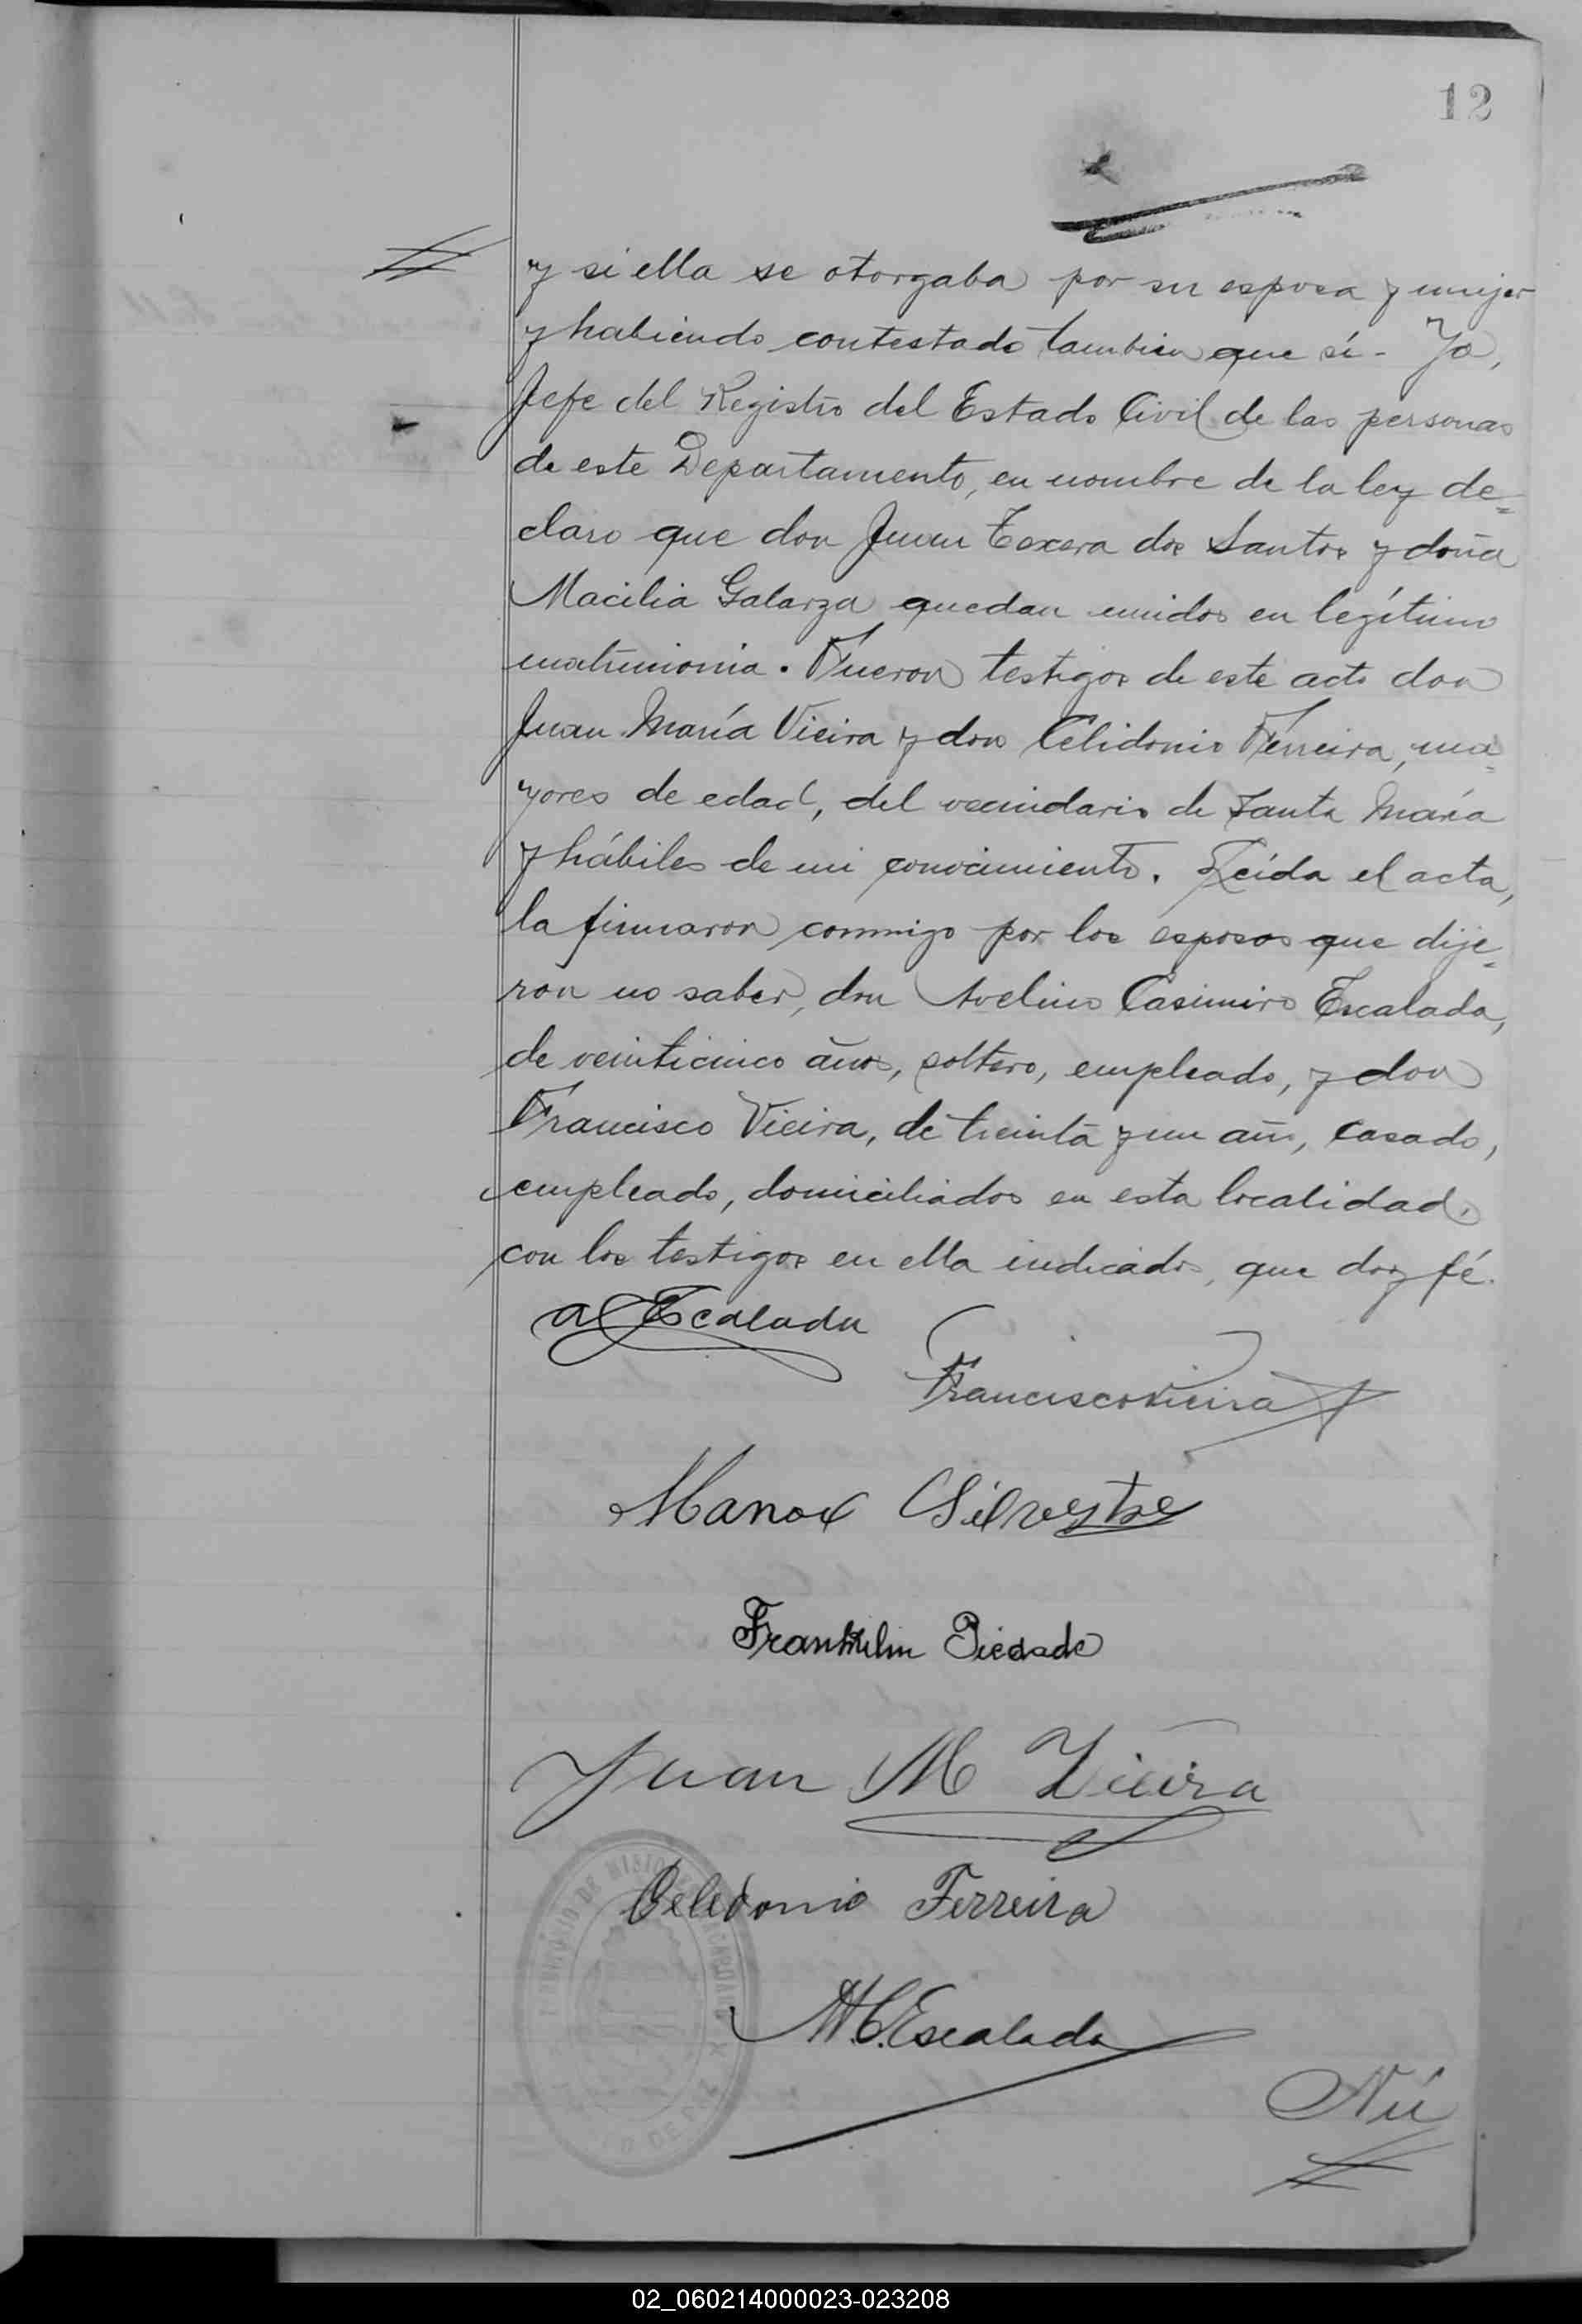 12
y si ella se otorgaba por su esposa y mujer
y habiendo contestado tambien que sí - Yo,
Jefe del Registro del Estado Civil de las personas
de este Departamento, en nombre de la ley de=
claro que don Juan Texera dos Santos y doña
Macilia Galarza quedan unidos en legítimo
matrimonio. Fueron testigos de este acto don
Juan María Vieira y don Celidonio Ferreira, ma=
yores de edad, del vecindario de Santa María
y hábiles de mi conocimiento. Leída el acta,
la firmaron conmigo por los esposos que dije=
ron no saber, don Avelino Casimiro Escalada,
de veinticinco años, soltero, empleado, y don
Francisco Vieira, de treinta y un años, casado,
empleado, domiciliados en esta localidad,
con los testigos en ella indicados, que doy fé.
A C Escalada
Francisco Vieira
Manoel Silvestre
Frankilin Piedade
Juan M Vieira
Celedonio Ferreira
A.C. Escalada
Nú
02_060214000023-023208